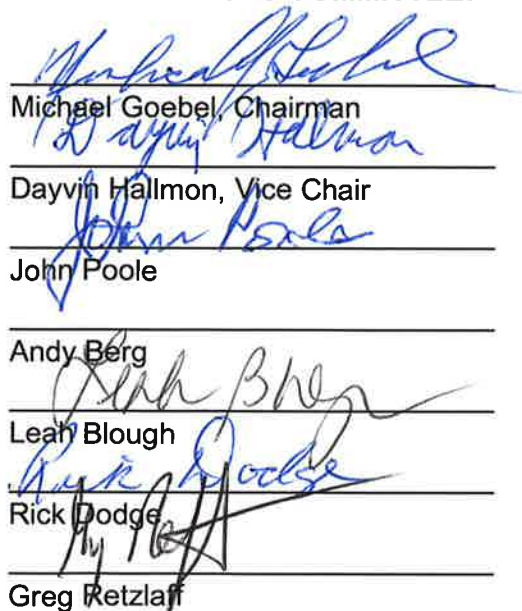 Michael Goebel, Chairman
Dayvin Hallmon
Dayvin Hallmon, Vice Chair
John Poole
John Poole
Andy Berg
Leah Blough
Leah Blough
Rick Dodge
Rick Dodge
Greg Retzlaff